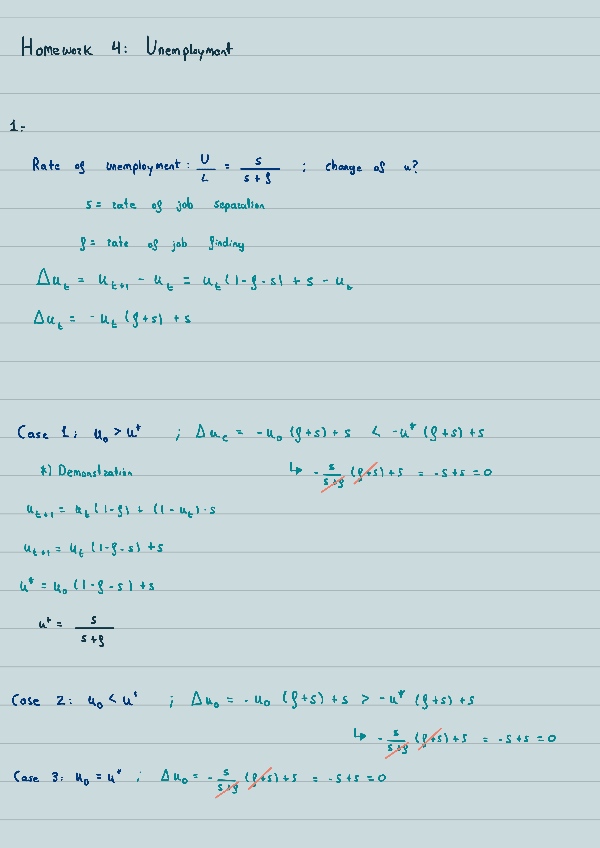 Homework 4: Unemployment
1.-
Rate of unemployment: U/L = s/(s+f) ; change of u?
s = rate of job separation
f = rate of job finding
Δu_t = u_{t+1} - u_t = u_t (1-f-s) + s - u_t
Δu_t = -u_t (f+s) + s
Case 1: u_0 > u* ; Δu_c = -u_0 (f+s) + s < -u* (f+s) + s
↳ -s/(s+f) (f+s) + s = -s+s = 0
*) Demonstration
u_{t+1} = u_t (1-f) + (1-u_t)·s
u_{t+1} = u_t (1-f-s) + s
u* = u_0 (1-f-s) + s
u* = s/(s+f)
Case 2: u_0 < u* ; Δu_0 = -u_0 (f+s) + s > -u* (f+s) + s
↳ -s/(s+f) (f+s) + s = -s+s = 0
Case 3: u_0 = u* ; Δu_0 = -s/(s+f) (f+s) + s = -s+s = 0